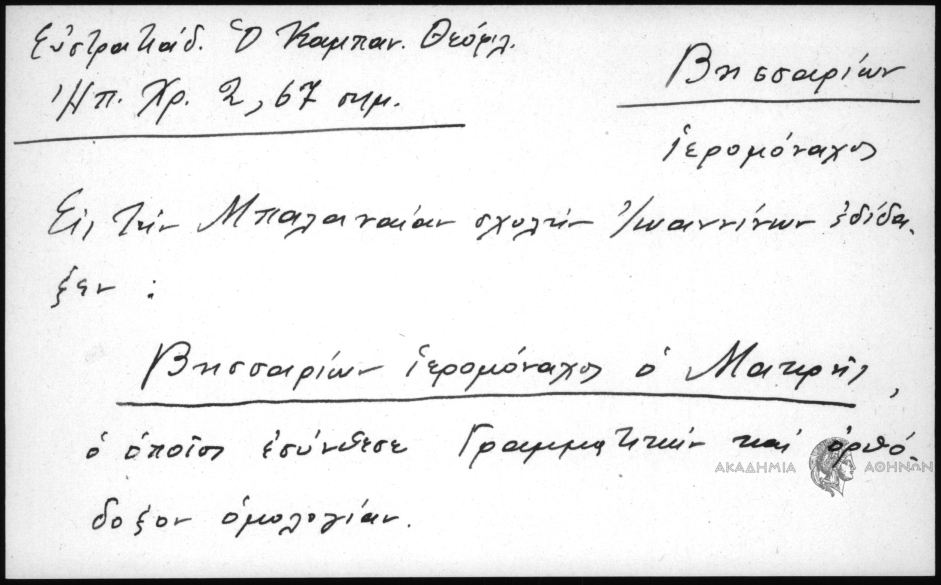 Εὐστρατιάδ. Ὁ Καμπαν. Θεόφιλ.
Ἠπ. Χρ. 2, 67 σημ.
Βησσαρίων
ἱερομόναχος
Εἰς τὴν Μπαλαναίαν σχολὴν Ἰωαννίνων ἐδίδα-
ξεν :
Βησσαρίων ἱερομόναχος ὁ Μακρῆς,
ὁ ὁποῖος ἐσύνθεσε Γραμματικὴν καὶ ὀρθό-
δοξον ὁμολογίαν.
ΑΚΑΔΗΜΙΑ ΑΘΗΝΩΝ